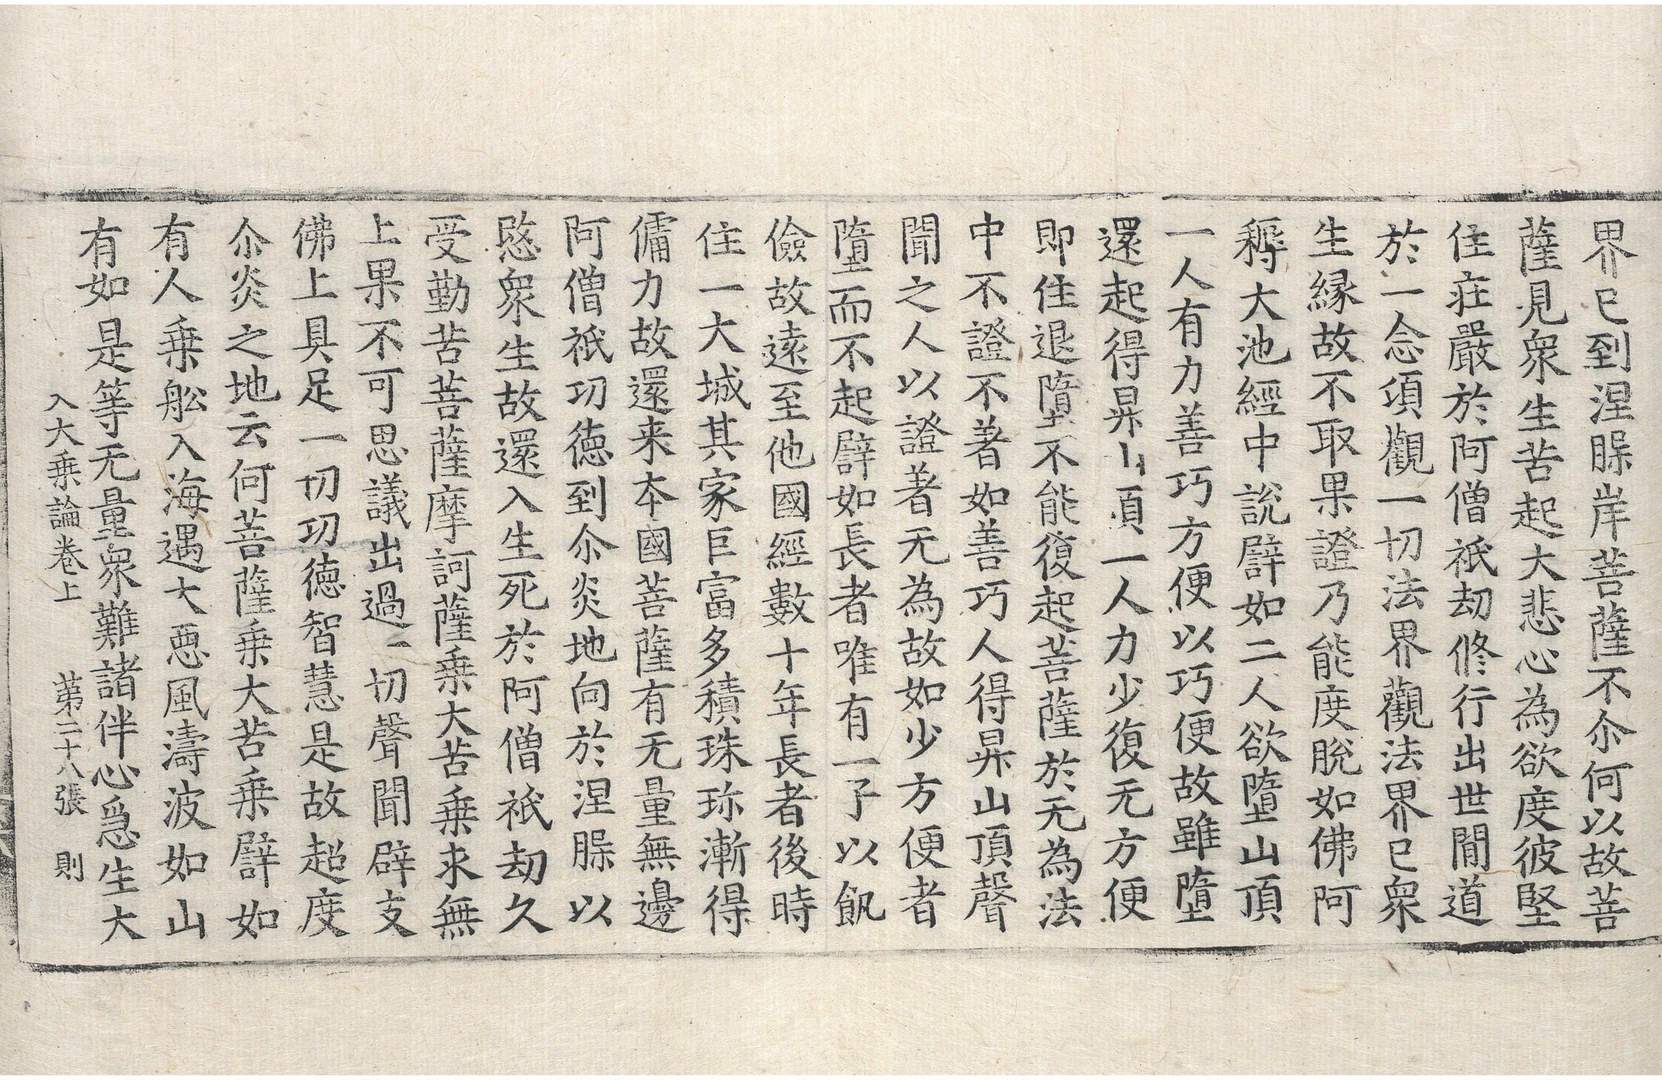 界已到涅槃岸菩薩不尒何以故菩
薩見衆生苦起大悲心為欲度彼堅
住莊嚴於阿僧祇劫修行出世間道
於一念頃觀一切法界觀法界已衆
生縁故不取果證乃能度脫如佛阿
耨大池經中說譬如二人欲墮山頂
一人有力善巧方便以巧便故雖墮
還起得昇山頂一人力少復无方便
即住退墮不能復起菩薩於无為法
中不證不著如善巧人得昇山頂聲
聞之人以證著无為故如少方便者
墮而不起譬如長者唯有一子以飢
儉故遠至他國經數十年長者後時
住一大城其家巨富多積珠珎漸得
傭力故還来本國菩薩有无量無邊
阿僧祇功德到尒炎地向於涅槃以
愍衆生故還入生死於阿僧祇劫久
受勤苦菩薩摩訶薩乗大苦乗求無
上果不可思議出過一切聲聞辟支
佛上具足一切功德智慧是故超度
尒炎之地云何菩薩乗大苦乗譬如
有人乗舩入海遇大惡風濤波如山
有如是等无量衆難諸伴心急生大
入大乗論卷上 第二十八張 則